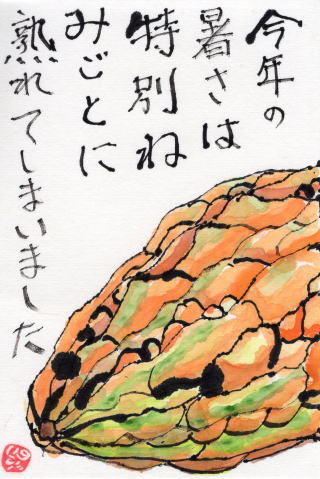 今年の
暑さは
特別ね
みごとに
熟れてしまいました